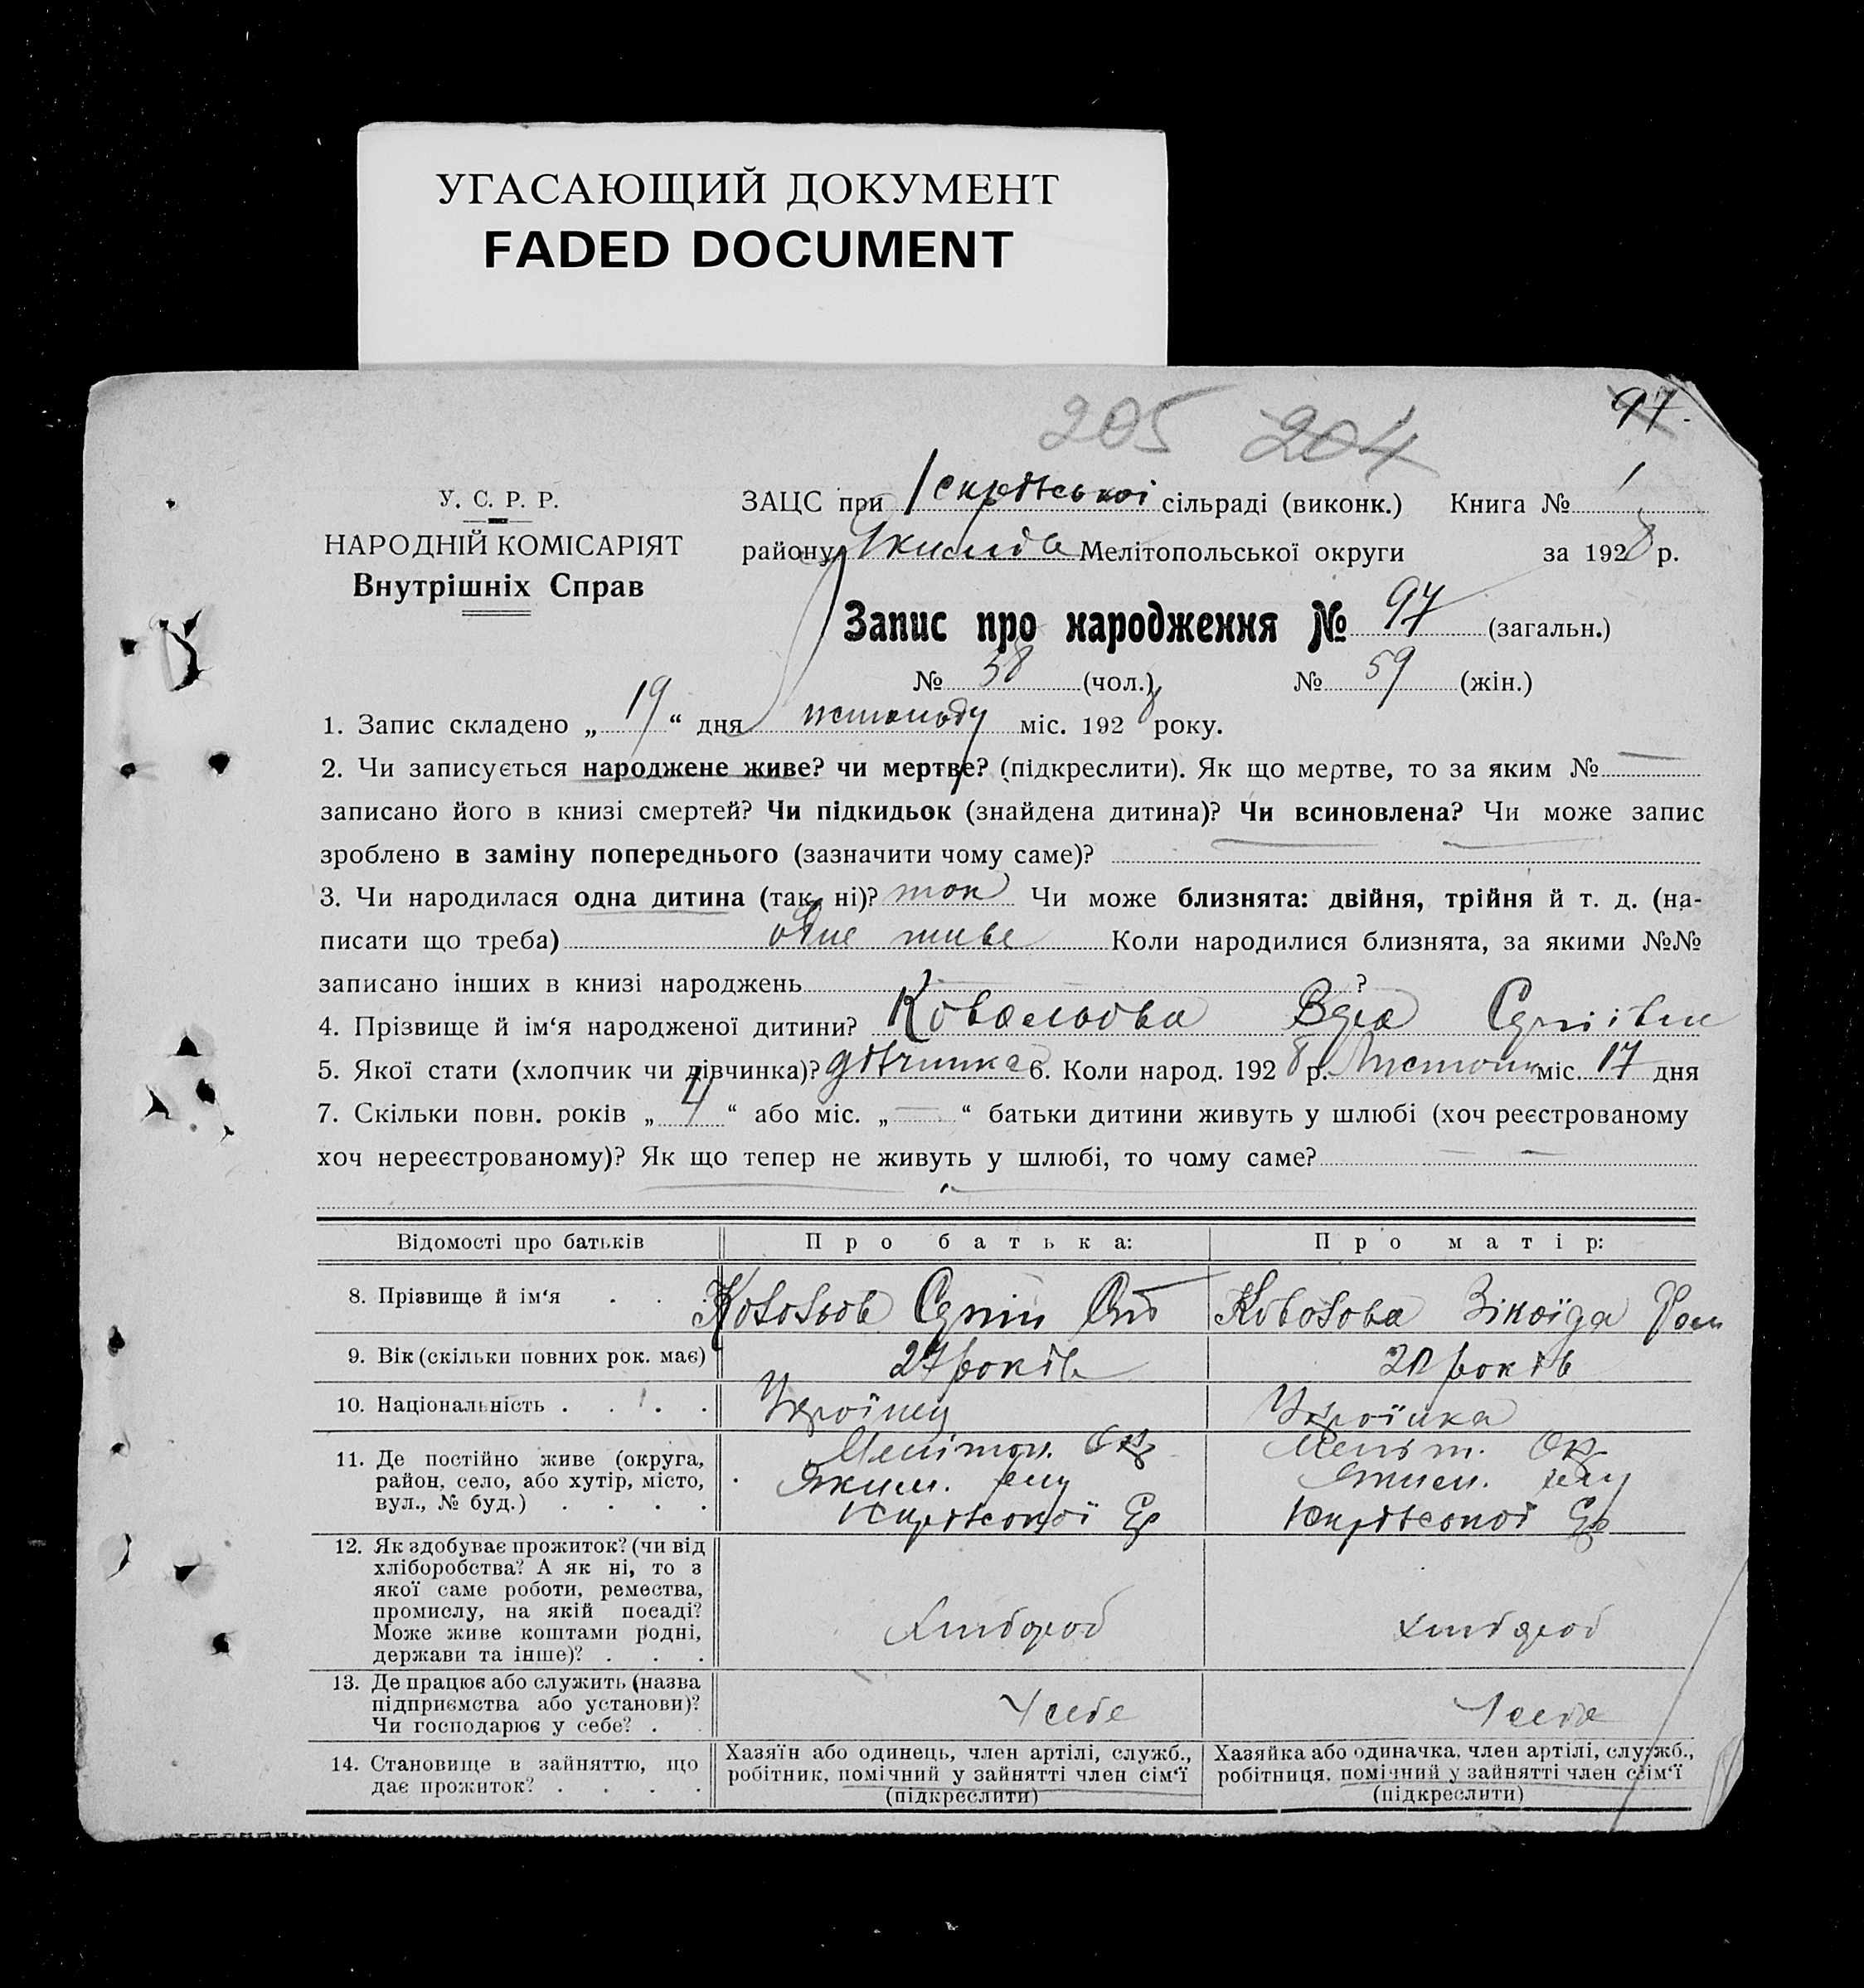 УГАСАЮЩИЙ ДОКУМЕНТ
FADED DOCUMENT
97.
205 204
У. С. Р. Р.
НАРОДНІЙ КОМІСАРІЯТ
Внутрішніх Справ
ЗАЦС при сільраді (виконк.) Книга № 1
району Мелітопольської округи за 1928 р.
Запис про народження № 97 (загальн.)
№ 38 (чол.) № 59 (жін.)
1. Запис складено „ 19 “ дня міс. 1928 року.
2. Чи записується народжене живе? чи мертве? (підкреслити). Як що мертве, то за яким №
записано його в книзі смертей? Чи підкидьок (знайдена дитина)? Чи всиновлена? Чи може запис
зроблено в заміну попереднього (зазначити чому саме)?
3. Чи народилася одна дитина (так, ні)? так Чи може близнята: двійня, трійня й т. д. (на-
писати що треба) одне живе Коли народилися близнята, за якими №№
записано інших в книзі народжень ?
4. Прізвище й ім‘я народженої дитини? Ковальова Вера
5. Якої стати (хлопчик чи дівчинка)? дівчинка 6. Коли народ. 1928 р. міс. 17 дня
7. Скільки повн. років „ 4 “ або міс. „ — “ батьки дитини живуть у шлюбі (хоч реєстрованому
хоч нереєстрованому)? Як що тепер не живуть у шлюбі, то чому саме? — —
Відомості про батьків Про батька: Про матір:
8. Прізвище й ім‘я . . .
9. Вік (скільки повних рок. має) 27 років 20 років
10. Національність . . . . Україниц Українка
11. Де постійно живе (округа, Мелітоп. Ок Меліт. Ок
район, село, або хутір, місто, Яким. Яким.
вул., № буд.) . . . .
12. Як здобуває прожиток? (чи від
хліборобства? А як ні, то з
якої саме роботи, ремества,
промислу, на якій посаді?
Може живе коштами родні,
держави та інше)? . . . Хлібороб хлібороб
13. Де працює або служить (назва
підприємства або установи)? У себе У себе
Чи господарює у себе? .
14. Становище в зайняттю, що
дає прожиток? . . . .
Хазяїн або одинець, член артілі, служб.,
робітник, помічний у зайнятті член сім‘ї
(підкреслити)
Хазяйка або одиначка, член артілі, служб.,
робітниця, помічний у зайнятті член сім‘ї
(підкреслити)